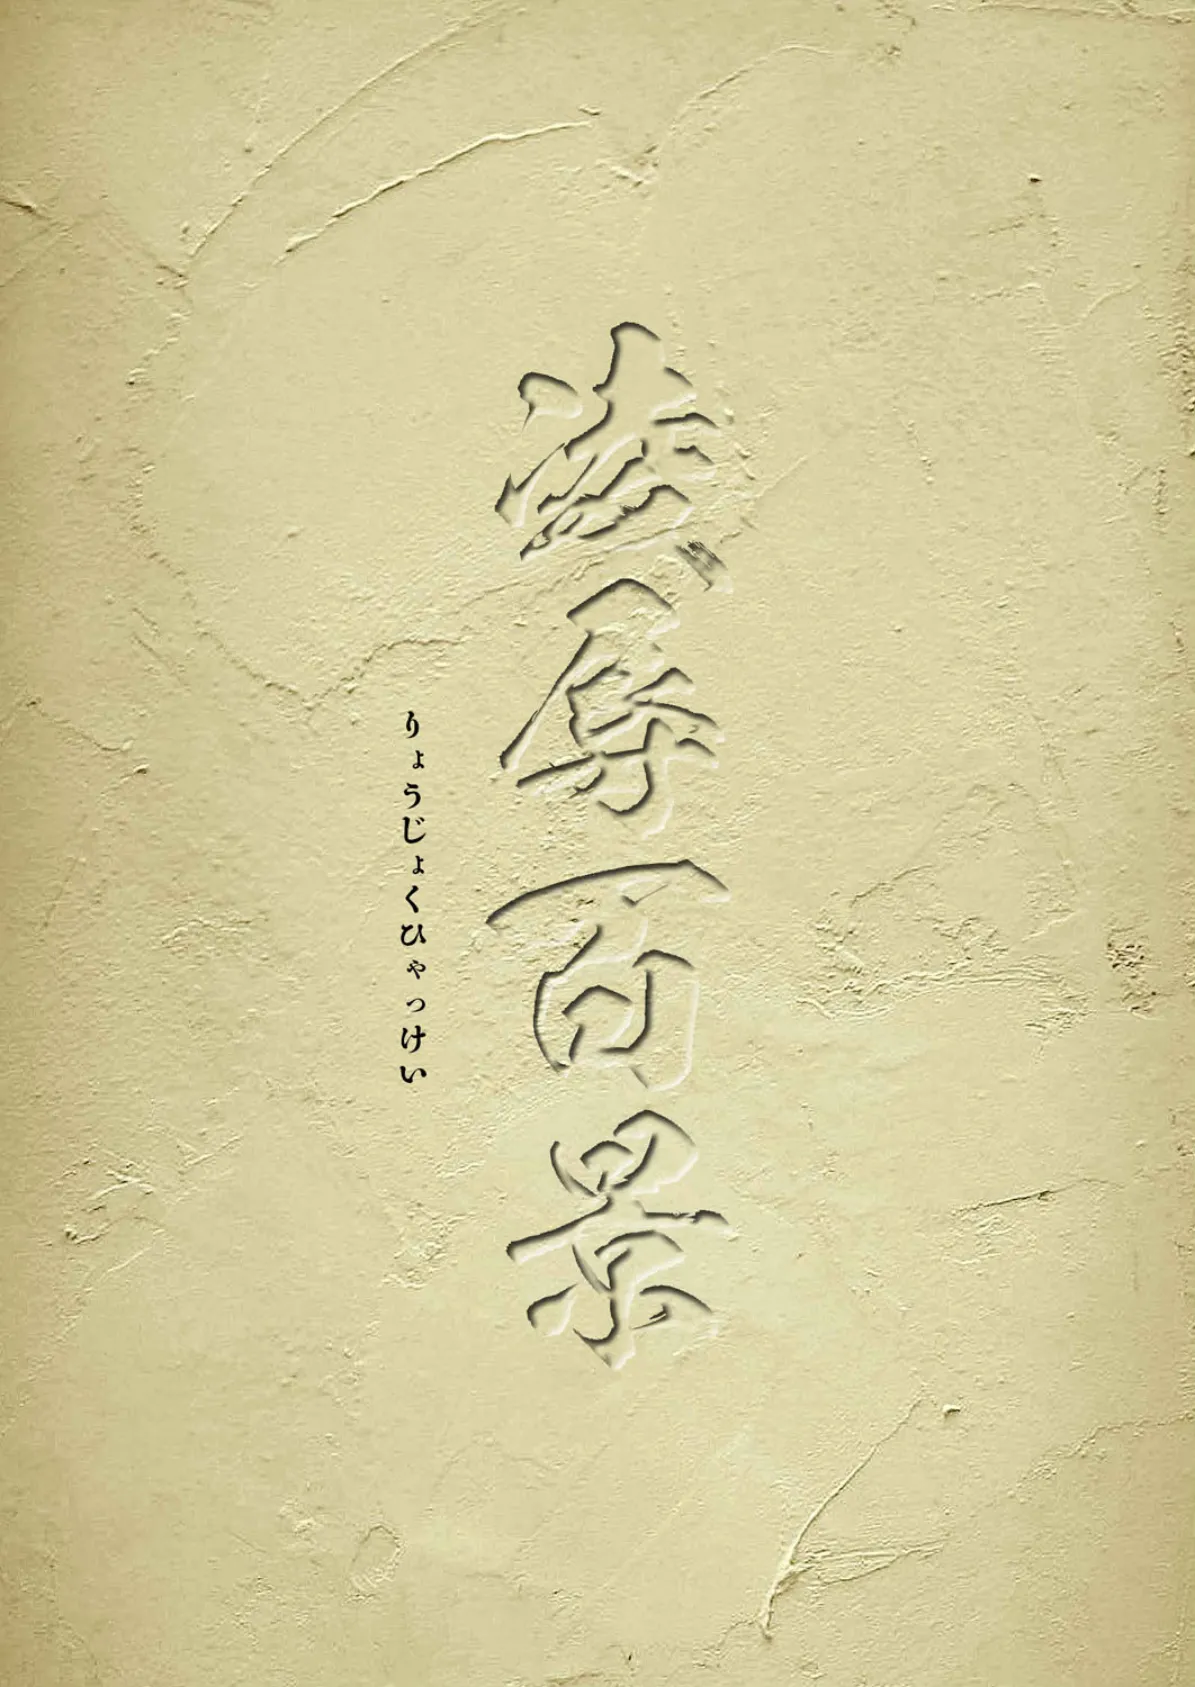 凌辱百景
りょうじょくひゃっけい